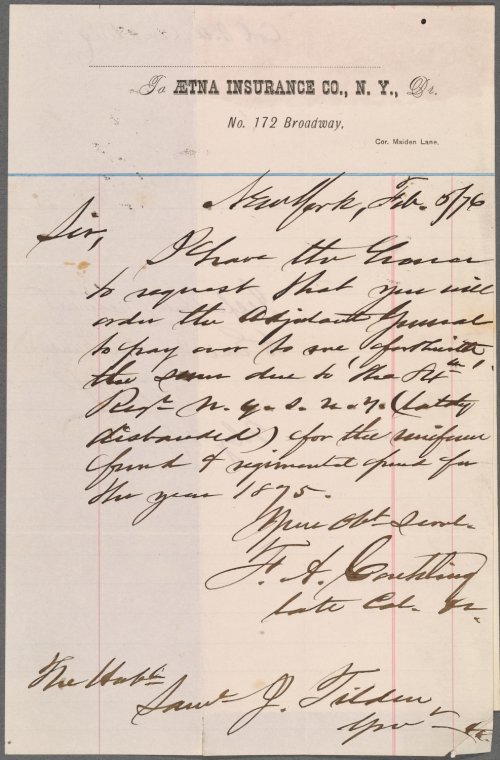 To ÆTNA INSURANCE CO., N. Y., Dr.
No. 172 Broadway,
Cor. Maiden Lane,
New York, Feb. 5/76
Sir,
I have the honor
to request that you will
order the Adjutant General
to pay over to me, forthwith,
the sum due to the 84th
Regt. N. G. S. N. Y. (lately
disbanded) for the uniform
fund & regimental fund for
the year 1875.
Your Obt Servt.
F. A. Conkling
late Col. &c.
The Hoble
Saml J. Tilden
Govr &c.